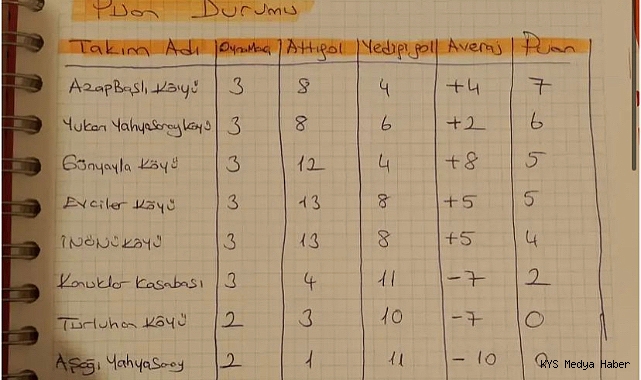 Puan Durumu
Takım Adı Oyn.Maç Attıgol Yedigi gol Averaj Puan
AzapBaşlı Köyü 3 8 4 +4 7
Yukarı Yahyasaray köyü 3 8 6 +2 6
Günyayla Köyü 3 12 4 +8 5
Evciler Köyü 3 13 8 +5 5
İNÖNÜ KÖYÜ 3 13 8 +5 4
Konuklar Kasabası 3 4 11 -7 2
Turluhan Köyü 2 3 10 -7 0
Aşağı Yahyasaray 2 1 11 -10 0
KYS Medya Haber